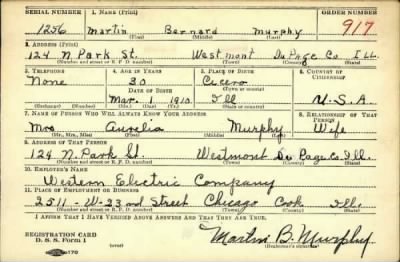 SERIAL NUMBER 1. NAME (Print) ORDER NUMBER
1256 Martin Bernard Murphy 917
(First) (Middle) (Last)
2. ADDRESS (Print)
124 N. Park St. Westmont Du Page Co. Ill.
(Number and street or R. F. D. number) (Town) (County) (State)
3. TELEPHONE 4. AGE IN YEARS 5. PLACE OF BIRTH 6. COUNTRY OF CITIZENSHIP
None 30 Cicero
DATE OF BIRTH
Mar. 1 1910 Ill U.S.A.
(Exchange) (Number) (Mo.) (Day) (Yr.) (State or country)
7. NAME OF PERSON WHO WILL ALWAYS KNOW YOUR ADDRESS 8. RELATIONSHIP OF THAT PERSON
Mrs Aurelia Murphy Wife
(Mr., Mrs., Miss) (First) (Middle) (Last)
9. ADDRESS OF THAT PERSON
124 N. Park St. Westmont Du Page Co. Ill.
(Number and street or R. F. D. number) (Town) (County) (State)
10. EMPLOYER'S NAME
Western Electric Company
11. PLACE OF EMPLOYMENT OR BUSINESS
2511 - W - 23rd Street Chicago Cook Ill.
(Number and street or R. F. D. number) (Town) (County) (State)
I AFFIRM THAT I HAVE VERIFIED ABOVE ANSWERS AND THAT THEY ARE TRUE.
REGISTRATION CARD
D. S. S. Form 1 Martin B. Murphy
(Registrar's signature)